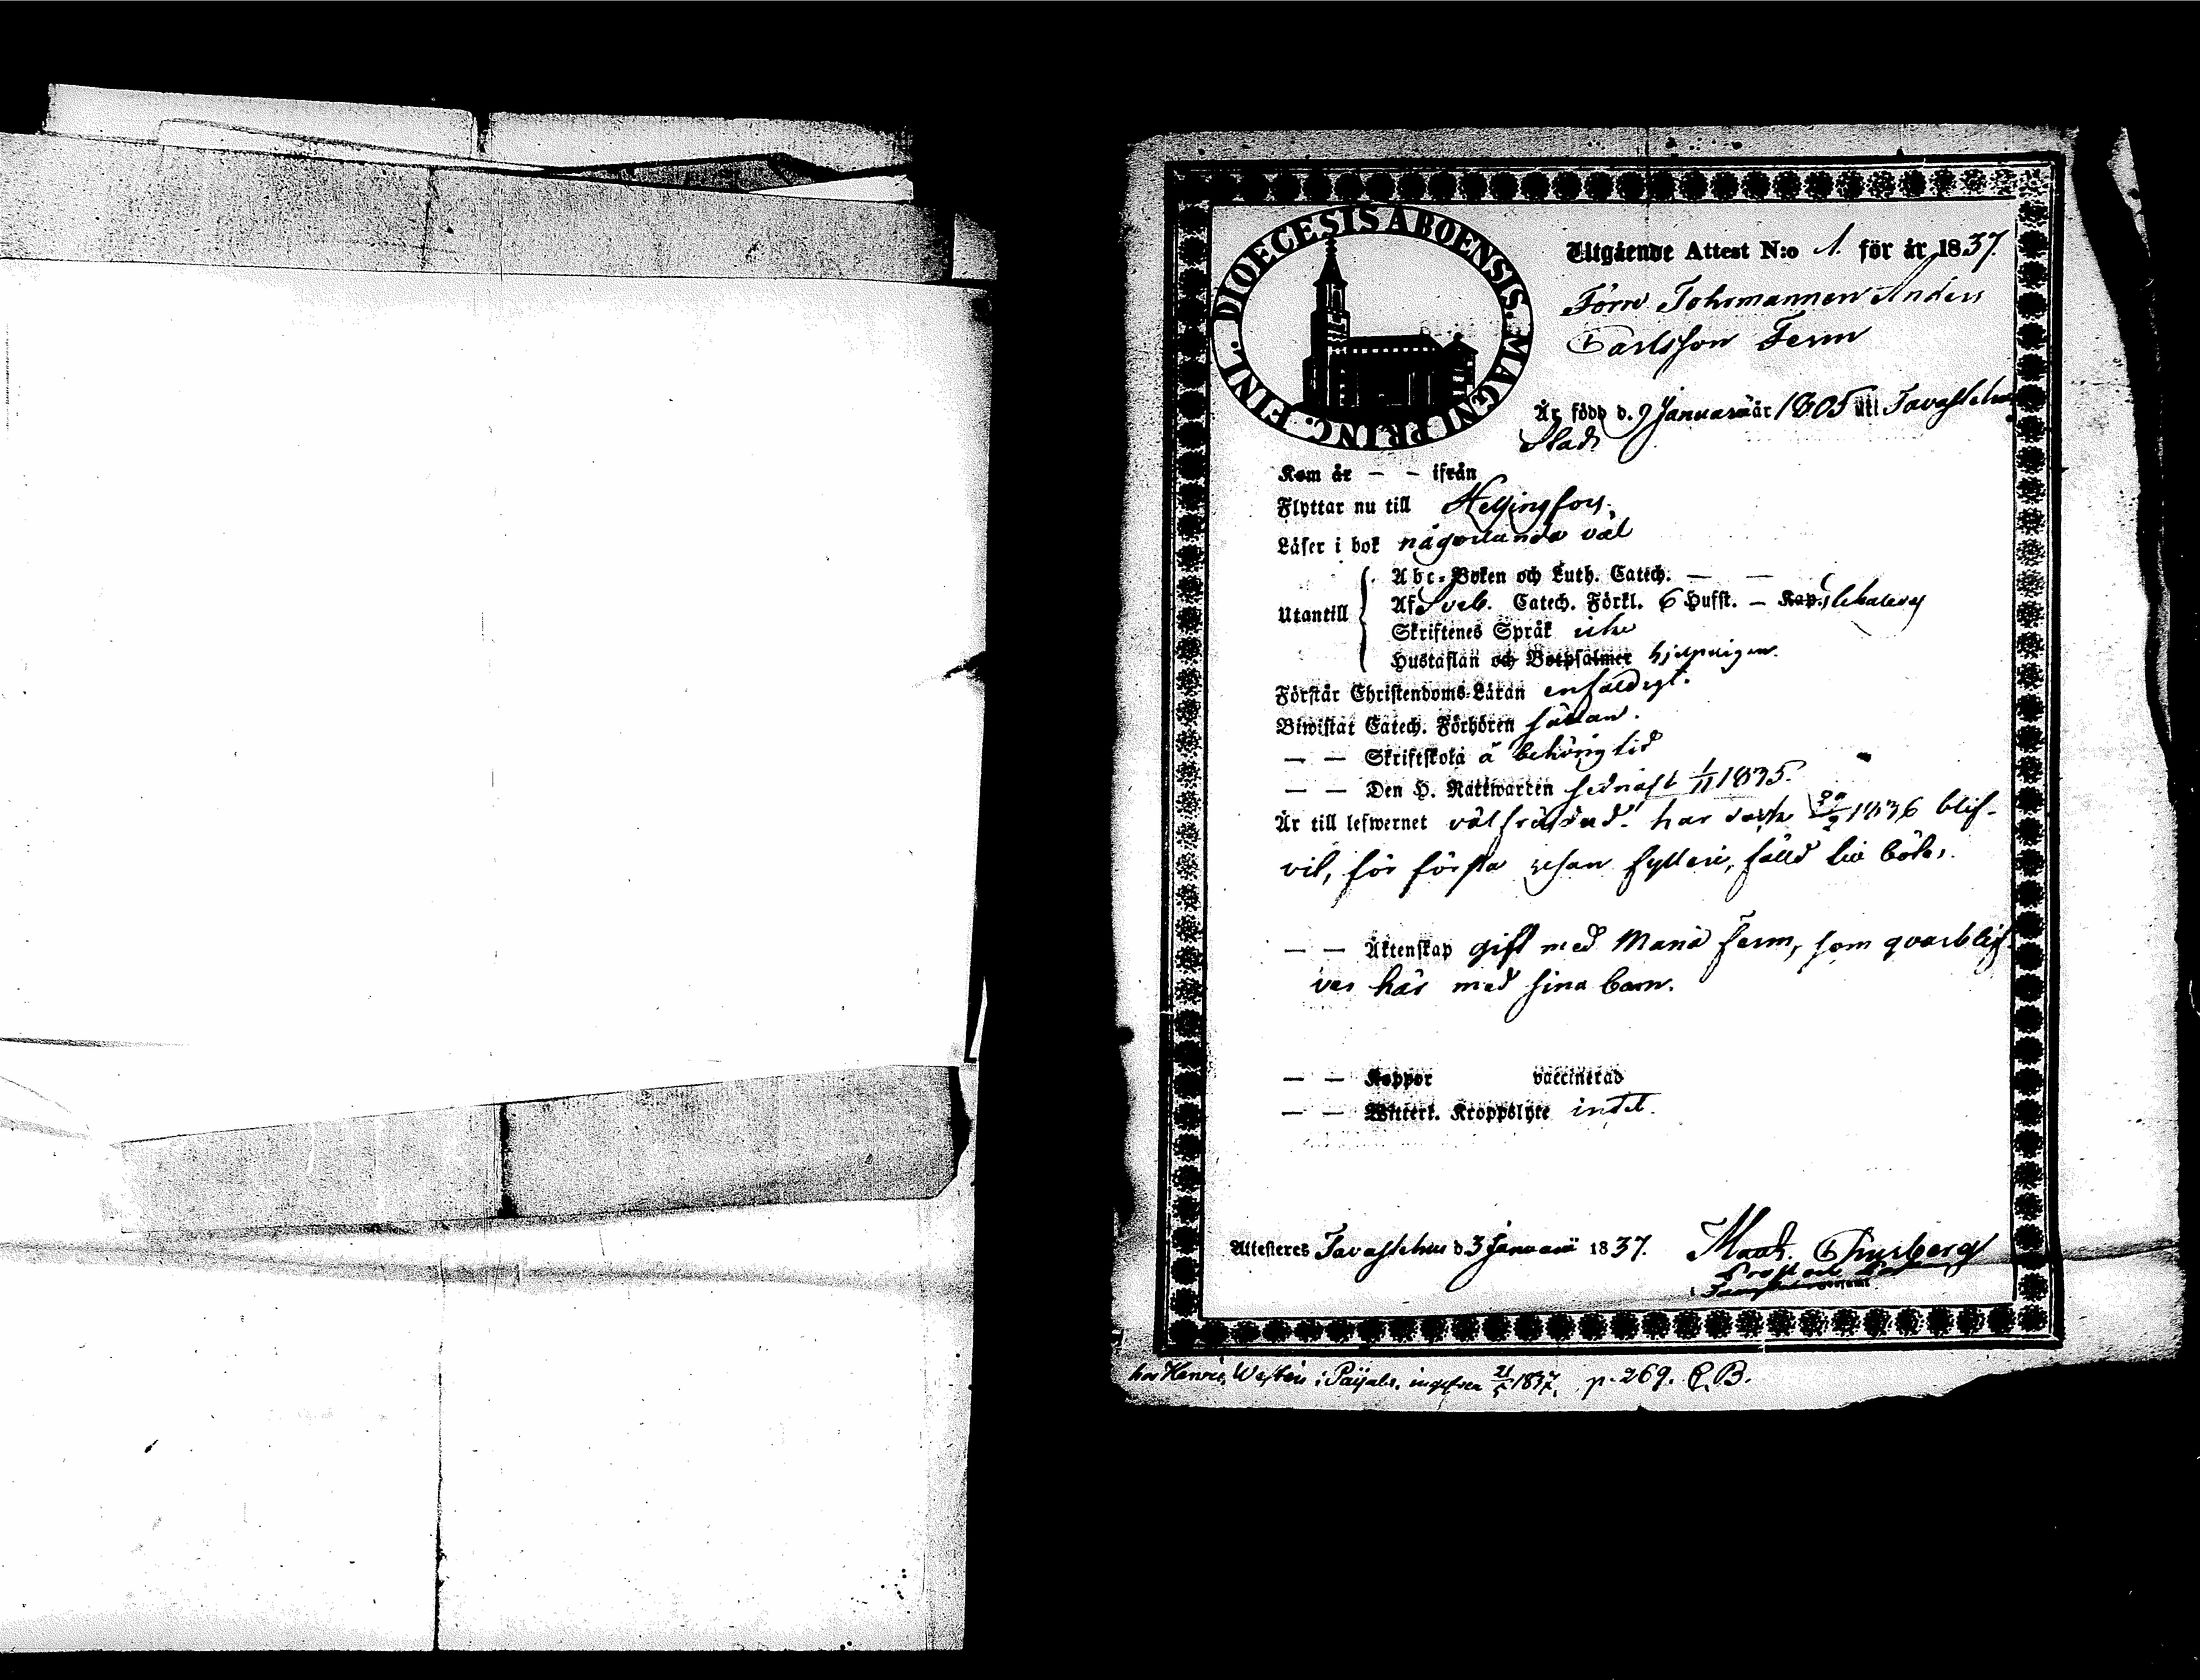 DIOECESIS ABOENSIS. MAGNI PRINC. FINL.
Utgående Attest N:o 1. för år 1837.
Förre Tohrmannen Anders
Carlsson Ferm
Är född d. 9 Januarii år 1805 uti Tavastehus
Stad
Kom år — — ifrån
Flyttar nu till Helsingfors.
Läser i bok någorlunda väl
Abc-Boken och Luth. Catech. — —
Utantill Af Sveb. Catech. Förkl. 6 Hufst. — Kap.
Skriftenes Språk icke
Hustaflan och Botpsalmer hjelpligen.
Förstår Christendoms-Läran enfaldigt.
Biwistat Catech. Förhören sällan.
— — Skriftskola å behörig tid
— — Den H. Nattwarden sednast 1/11 1835.
Är till lefwernet välfräjdad. har 1836 blif-
vit, för första resan fylleri, fälld till böter.
— — Äktenskap gift med Maria Ferm, som qvarblif-
ver här med sina barn.
— — Koppor vaccinerad
— — Mitterl. Kroppslyte intet.
Attesteras Tavastehus d 3 Januarii 1837.
hos Henric Westén i Päijälä, 1837. p. 269. C.B.